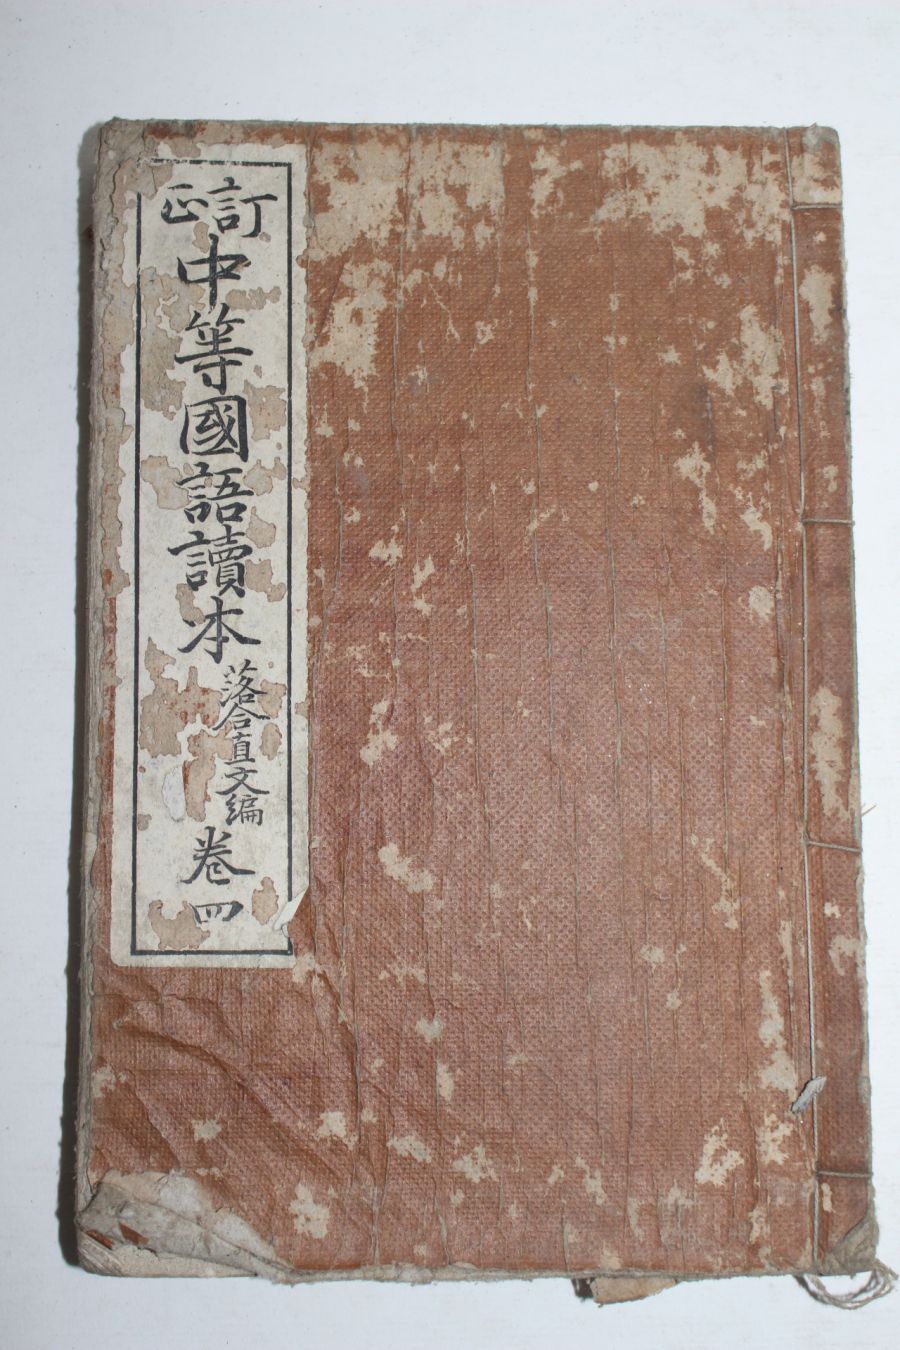 訂正
中等國語讀本
落合直文編
卷四